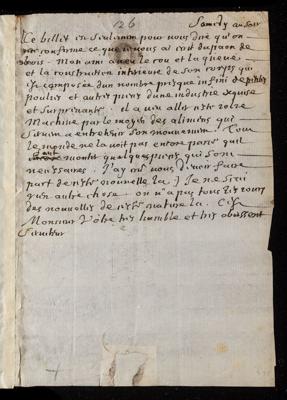 126
Samedy au soir
Ce billet est seulement pour vous dire qu'on
me confirme ce que je vous ai écrit du paon de
bois. Mon ami a veu le cou et la queue
et la construction interieure de son corps qui
est composée d'un nombre presque infini de petites
poulies et autres pieces d'une industrie exquise
et surprenante. il a veu aller cette
Machine par le moyen des alimens qui
servent a entretenir son mouvement. Tout
le monde ne la voit pas encore parce qu'il
faut monter quelques pieces qui sont
necessaires. J'ay cru vous devoir faire
part de cette nouvelle la. Je ne sçai
qu'un autre chose. on n'a pas tous les jours
des nouvelles de cette nature la. C'est
Monsieur Vôtre tres humble et tres obeissant
Serviteur